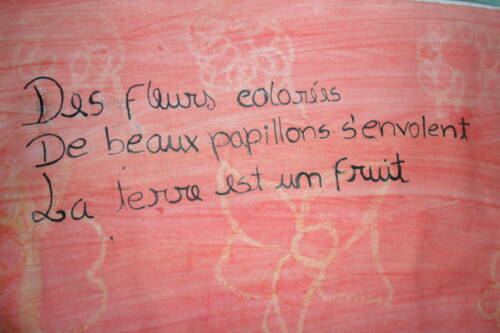 Des fleurs colorées
De beaux papillons s'envolent
La terre est un fruit